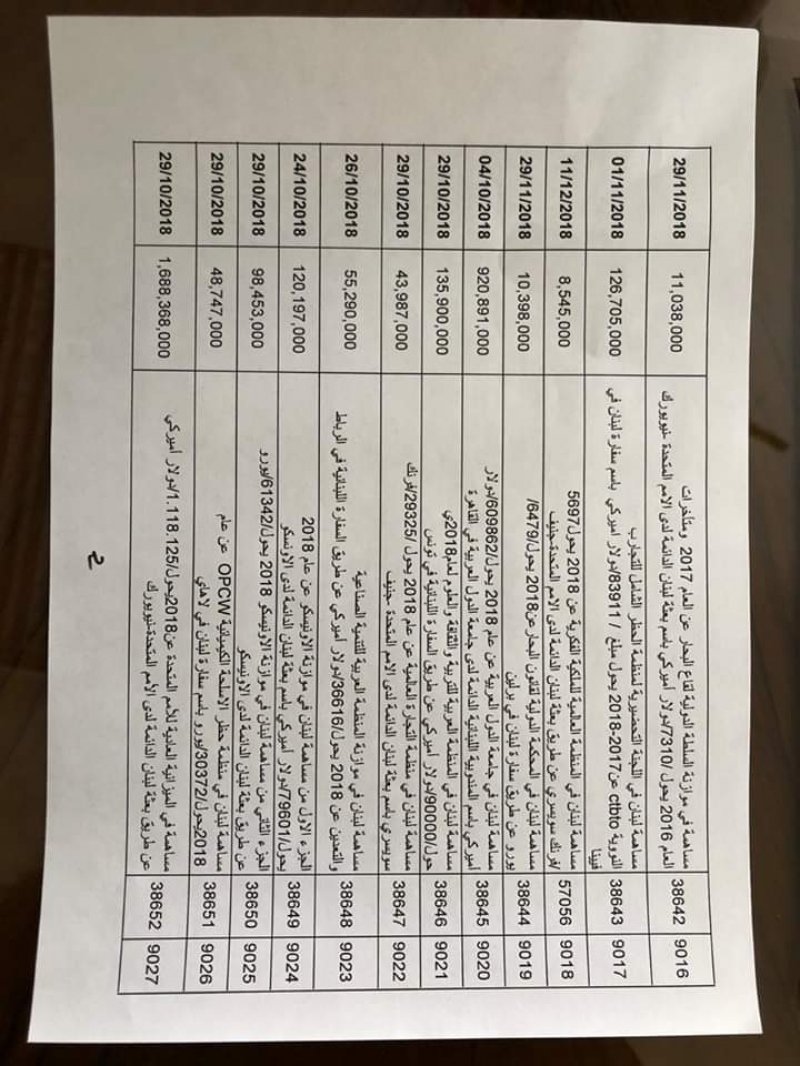 9016 38642 مساهمة في موازنة السلطة الدولية لقاع البحار عن العام 2017 ومتأخرات 11,038,000 29/11/2018
العام 2016 يحول /7310/دولار اميركي باسم بعثة لبنان الدائمة لدى الامم المتحدة -نيويورك
9017 38643 مساهمة لبنان في اللجنة التحضيرية لمنظمة الحظر الشامل للتجارب 126,705,000 01/11/2018
النووية ctbto عن2017-2018 يحول مبلغ / 83911/دولار اميركي باسم سفارة لبنان في
فيينا
9018 57056 مساهمة لبنان في المنظمة العالمية للملكية الفكرية عن 2018 يحول5697 8,545,000 11/12/2018
/فرنك سويسري عن طريق بعثة لبنان الدائمة لدى الامم المتحدة-جنيف
9019 38644 مساهمة لبنان في المحكمة الدولية لقانون البحارعن2018 يحول/6479/ 10,398,000 29/11/2018
يورو عن طريق سفارة لبنان في برلين
9020 38645 مساهمة لبنان في جامعة الدول العربية عن عام 2018 يحول/609862/دولار 920,891,000 04/10/2018
أميركي باسم المندوبية اللبنانية الدائمة لدى جامعة الدول العربية في القاهرة
9021 38646 مساهمة لبنان في المنظمة العربية للتربية والثقافة والعلوم لعام2018ي 135,900,000 29/10/2018
حول/90000/دولار أميركي عن طريق السفارة اللبنانية في تونس
9022 38647 مساهمة لبنان في منظمة التجارة العالمية عن عام 2018 يحول /29325/فرنك 43,987,000 29/10/2018
سويسري باسم بعثة لبنان الدائمة لدى الامم المتحدة -جنيف
9023 38648 مساهمة لبنان في موازنة المنظمة العربية للتنمية الصناعية 55,290,000 26/10/2018
والتعدين عن 2018 يحول/36616/دولار أميركي عن طريق السفارة اللبنانية في الرباط
9024 38649 الجزء الاول من مساهمة لبنان في موازنة الاونيسكو عن عام 2018 120,197,000 24/10/2018
يحول/79601/دولار أميركي باسم بعثة لبنان الدائمة لدى الاونسكو
9025 38650 الجزء الثاني من مساهمة لبنان في موازنة الاونيسكو 2018 يحول/61342/يورو 98,453,000 29/10/2018
عن طريق بعثة لبنان الدائمة لدى الاونيسكو
9026 38651 مساهمة لبنان في منظمة حظر الاسلحة الكيميائية OPCW عن عام 48,747,000 29/10/2018
2018يحول/30372/يورو باسم سفارة لبنان في لاهاي
9027 38652 مساهمة في الميزانية العادية للأمم المتحدة عن2018يحول/1.118.125/دولار أميركي 1,688,368,000 29/10/2018
عن طريق بعثة لبنان الدائمة لدى الامم المتحدة-نيويورك